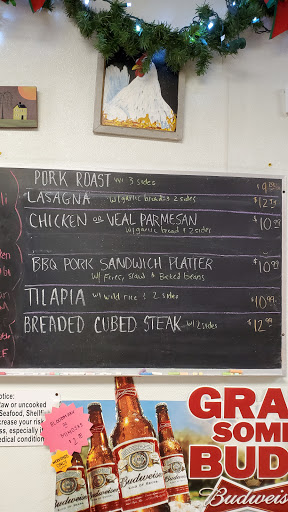 PORK ROAST w/ 3 sides $9.
LASAGNA w/garlic bread & 2 sides $12
CHICKEN or VEAL PARMESAN $10.99
w/garlic bread & 2 sides
BBQ PORK SANDWICH PLATTER $10.99
w/ Fries, slaw & Baked beans
TILAPIA w/ wild rice & 2 sides $10.99
BREADED CUBED STEAK w/ 2 sides $12.99
otice:
raw or uncooked
Seafood, Shellfi
crease your risk
ss, especially i
edical condition
GRA
SOME
BUD
Budweiser
Budweiser
Budweiser